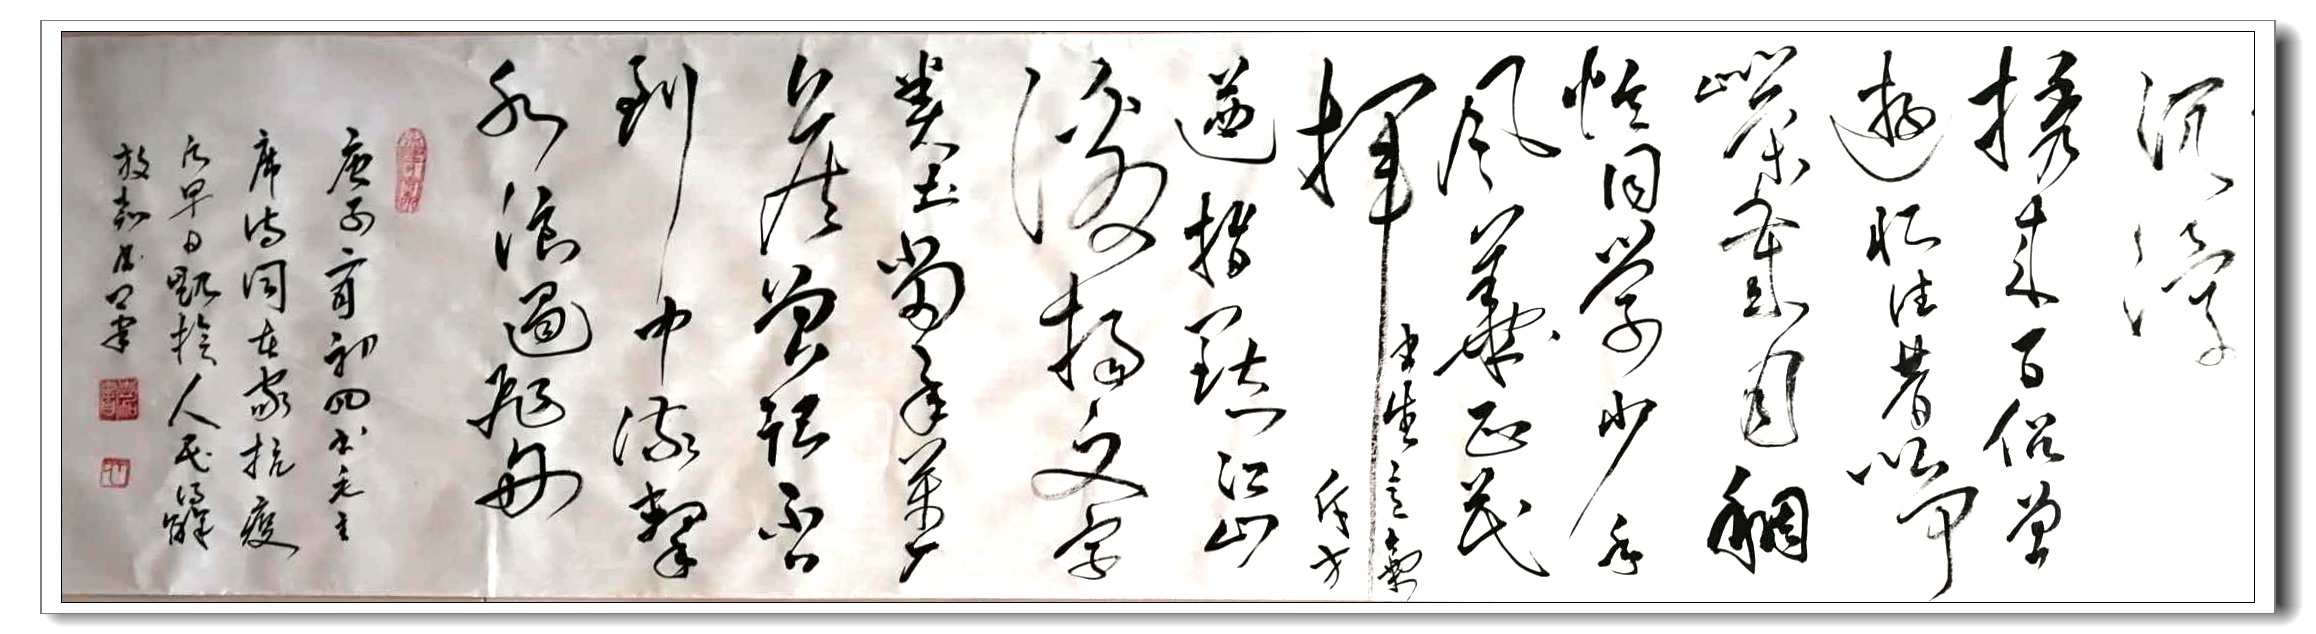 沉浮
携来百侣曾
游忆往昔峥
嵘岁月稠
恰同学少年
风华正茂
书生意气
挥
斥方
遒指点江山
激扬文字
粪土当年万户
侯曾记否
到中流击
水浪遏飞舟
庚子初四书毛主
席诗词在家抗疫
早日人民得解
放